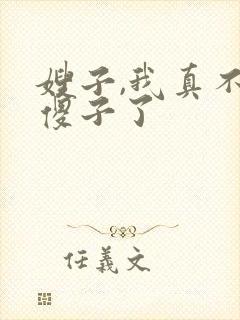 嫂子,我真不
傻子了
任義文